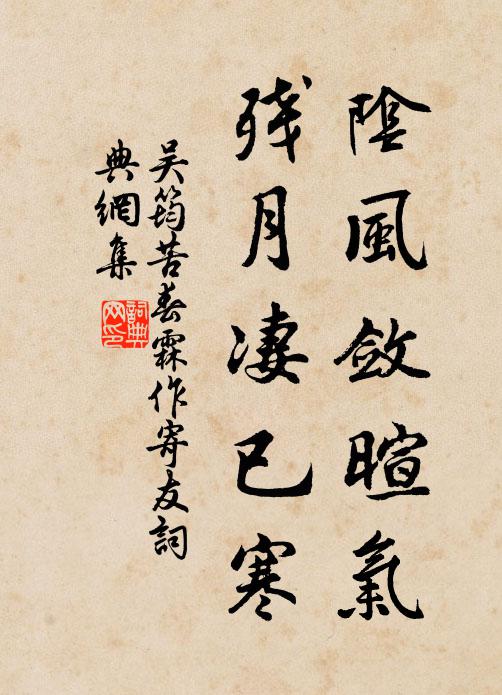 陰風斂暄氣
殘月凄已寒
吴筠苦春霖作寄友詞
典網集
詞典網印